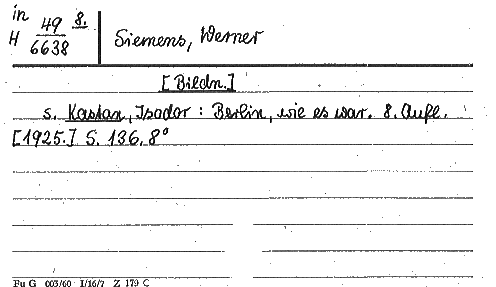 in
H 49 8.
6638
Siemens, Werner
[Bildn.]
s. Kastan, Isador : Berlin, wie es war. 8. Aufl.
[1925.] S. 136. 8°
Fu G 003/60 I/16/7 Z 179 C